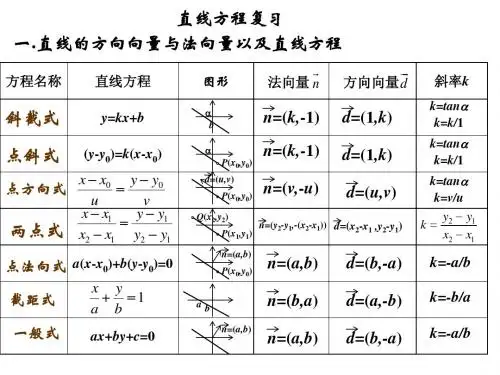 直线方程复习
一.直线的方向向量与法向量以及直线方程
方程名称 直线方程 图形 法向量n 方向向量d 斜率k
斜截式 y=kx+b α b n=(k,-1) d=(1,k) k=tanα k=k/1
点斜式 (y-y₀)=k(x-x₀) α P(x₀,y₀) n=(k,-1) d=(1,k) k=tanα k=k/1
点方向式 (x-x₀)/u=(y-y₀)/v d=(u,v) P(x₀,y₀) n=(v,-u) d=(u,v) k=tanα k=v/u
两点式 (x-x₁)/(x₂-x₁)=(y-y₁)/(y₂-y₁) Q(x₂,y₂) P(x₁,y₁) n=(y₂-y₁,-(x₂-x₁)) d=(x₂-x₁,y₂-y₁) k=(y₂-y₁)/(x₂-x₁)
点法向式 a(x-x₀)+b(y-y₀)=0 n=(a,b) P(x₀,y₀) n=(a,b) d=(b,-a) k=-a/b
截距式 x/a+y/b=1 a b n=(b,a) d=(a,-b) k=-b/a
一般式 ax+by+c=0 n=(a,b) n=(a,b) d=(b,-a) k=-a/b